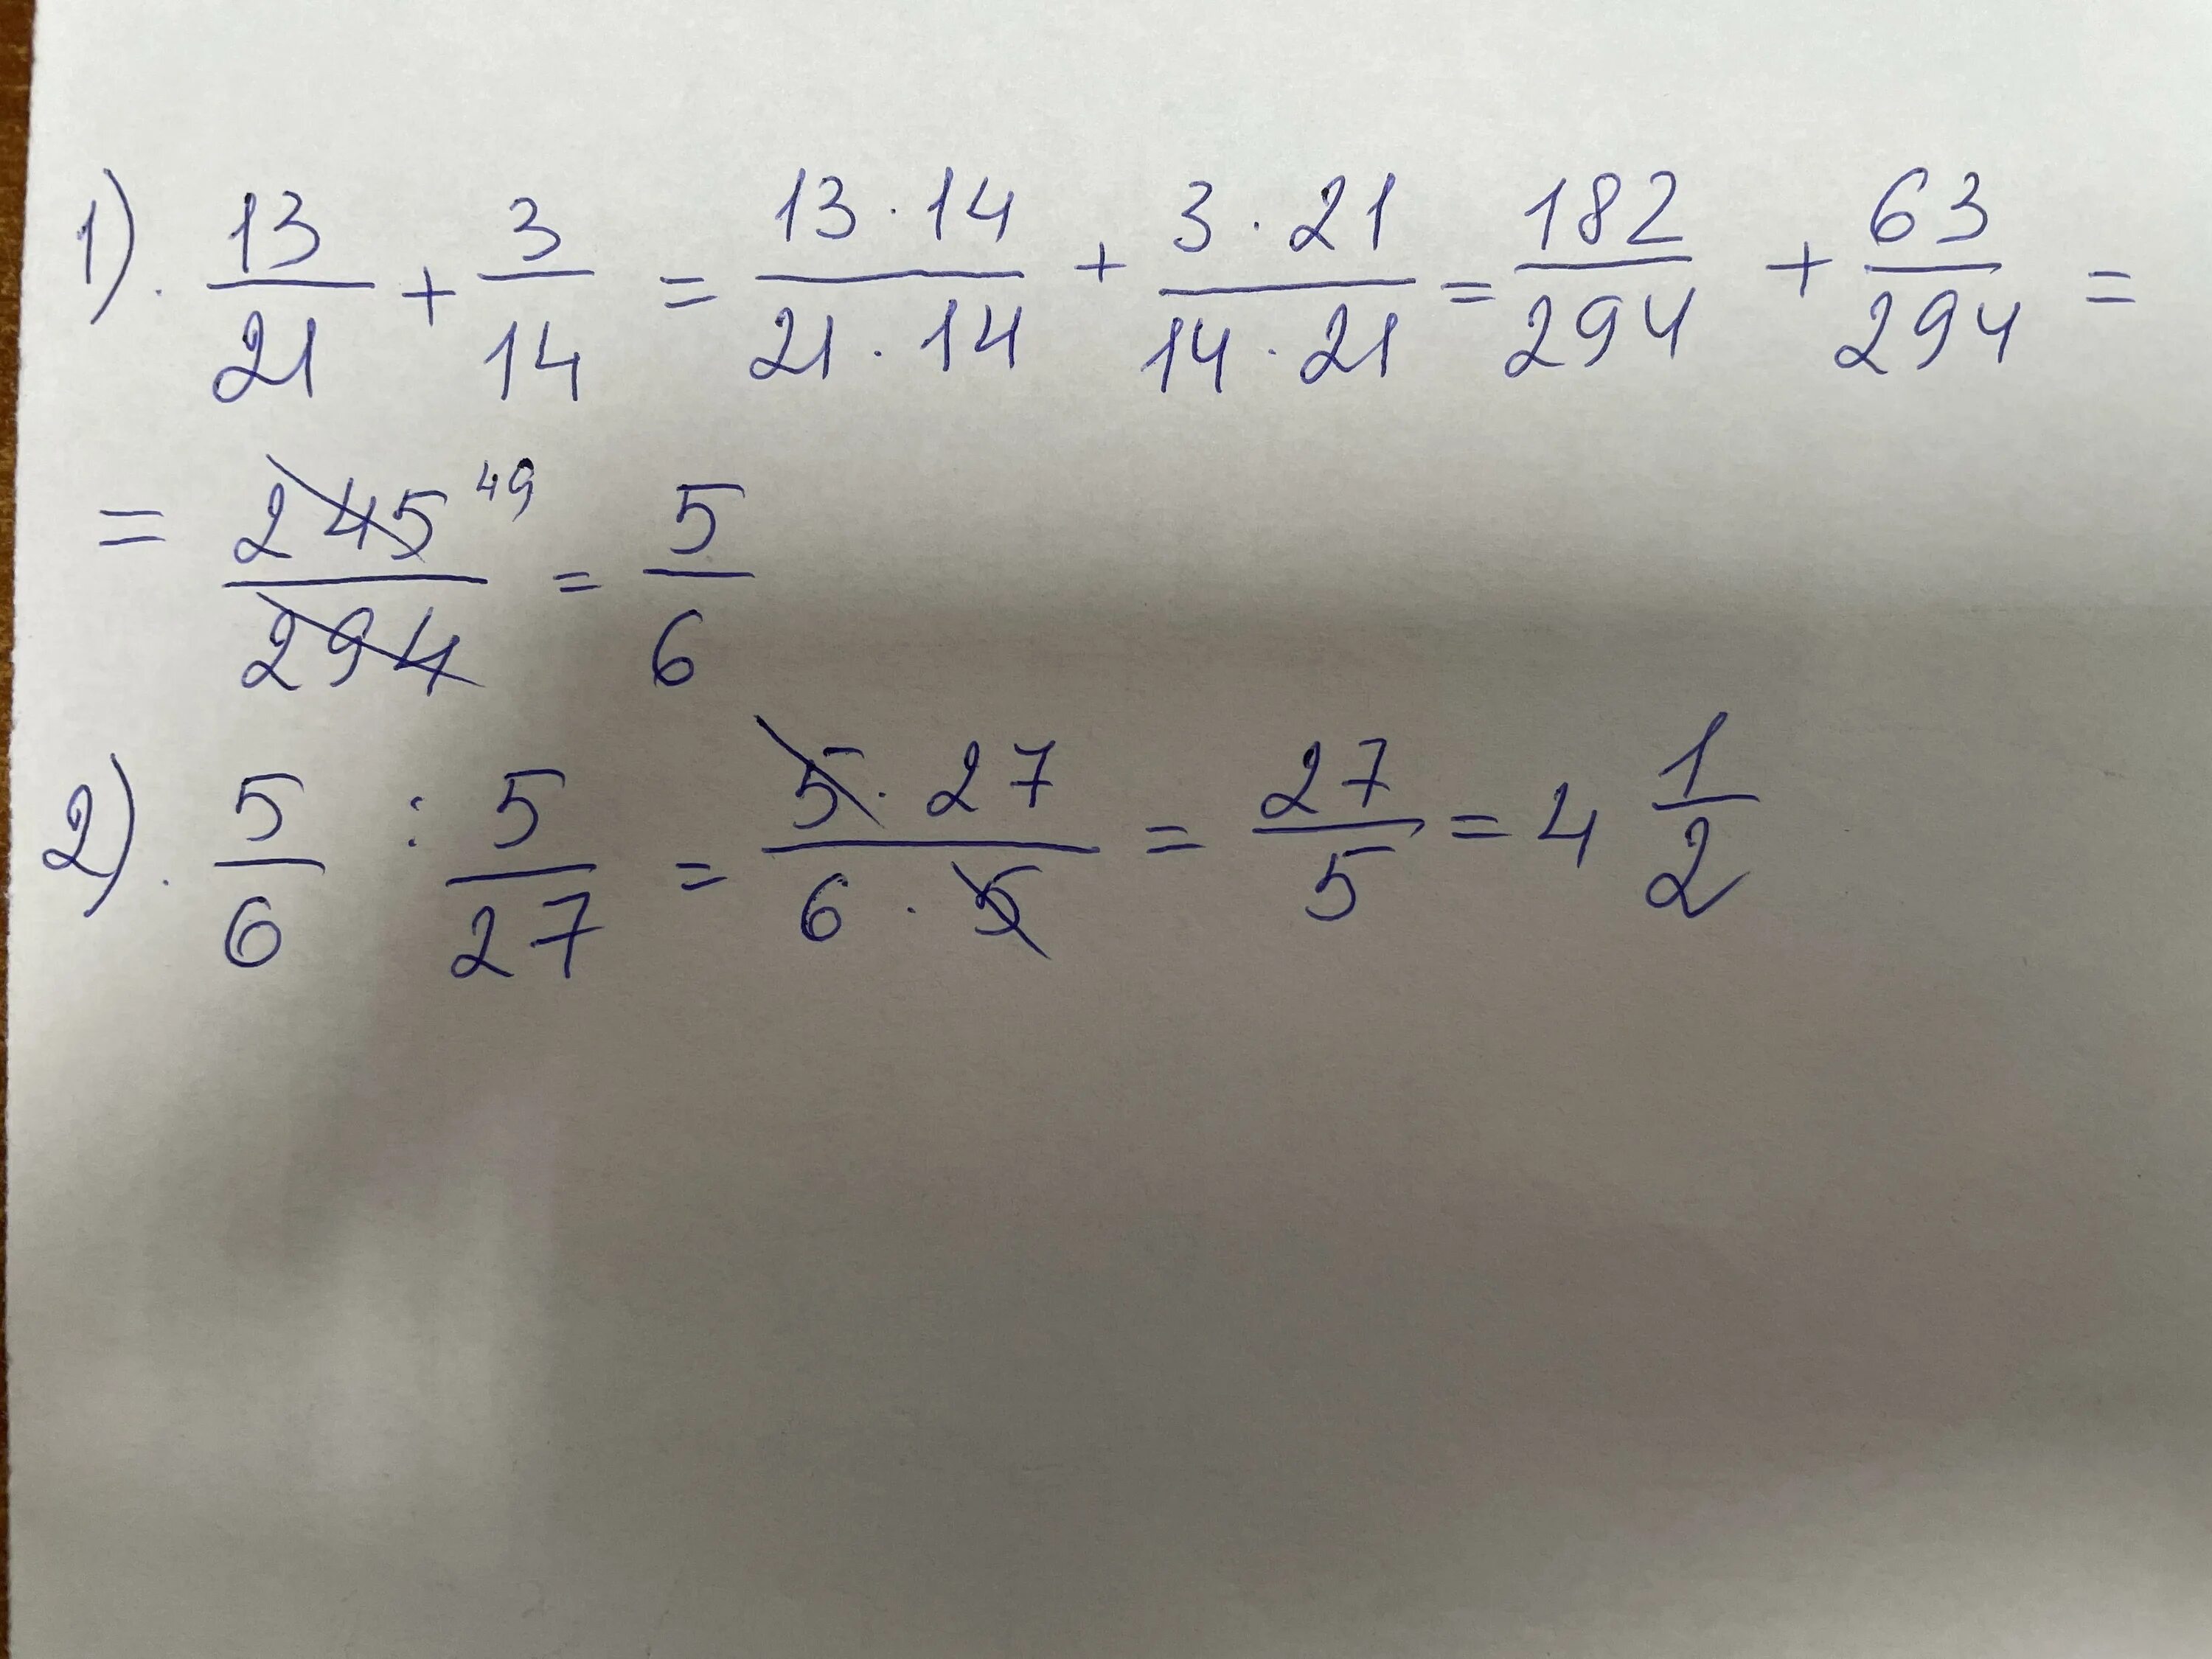 1). 13/21 + 3/14 = 13·14/21·14 + 3·21/14·21 = 182/294 + 63/294 =
= 245/294 49 = 5/6
2). 5/6 : 5/27 = 5·27/6·5 = 27/5 = 4 1/2